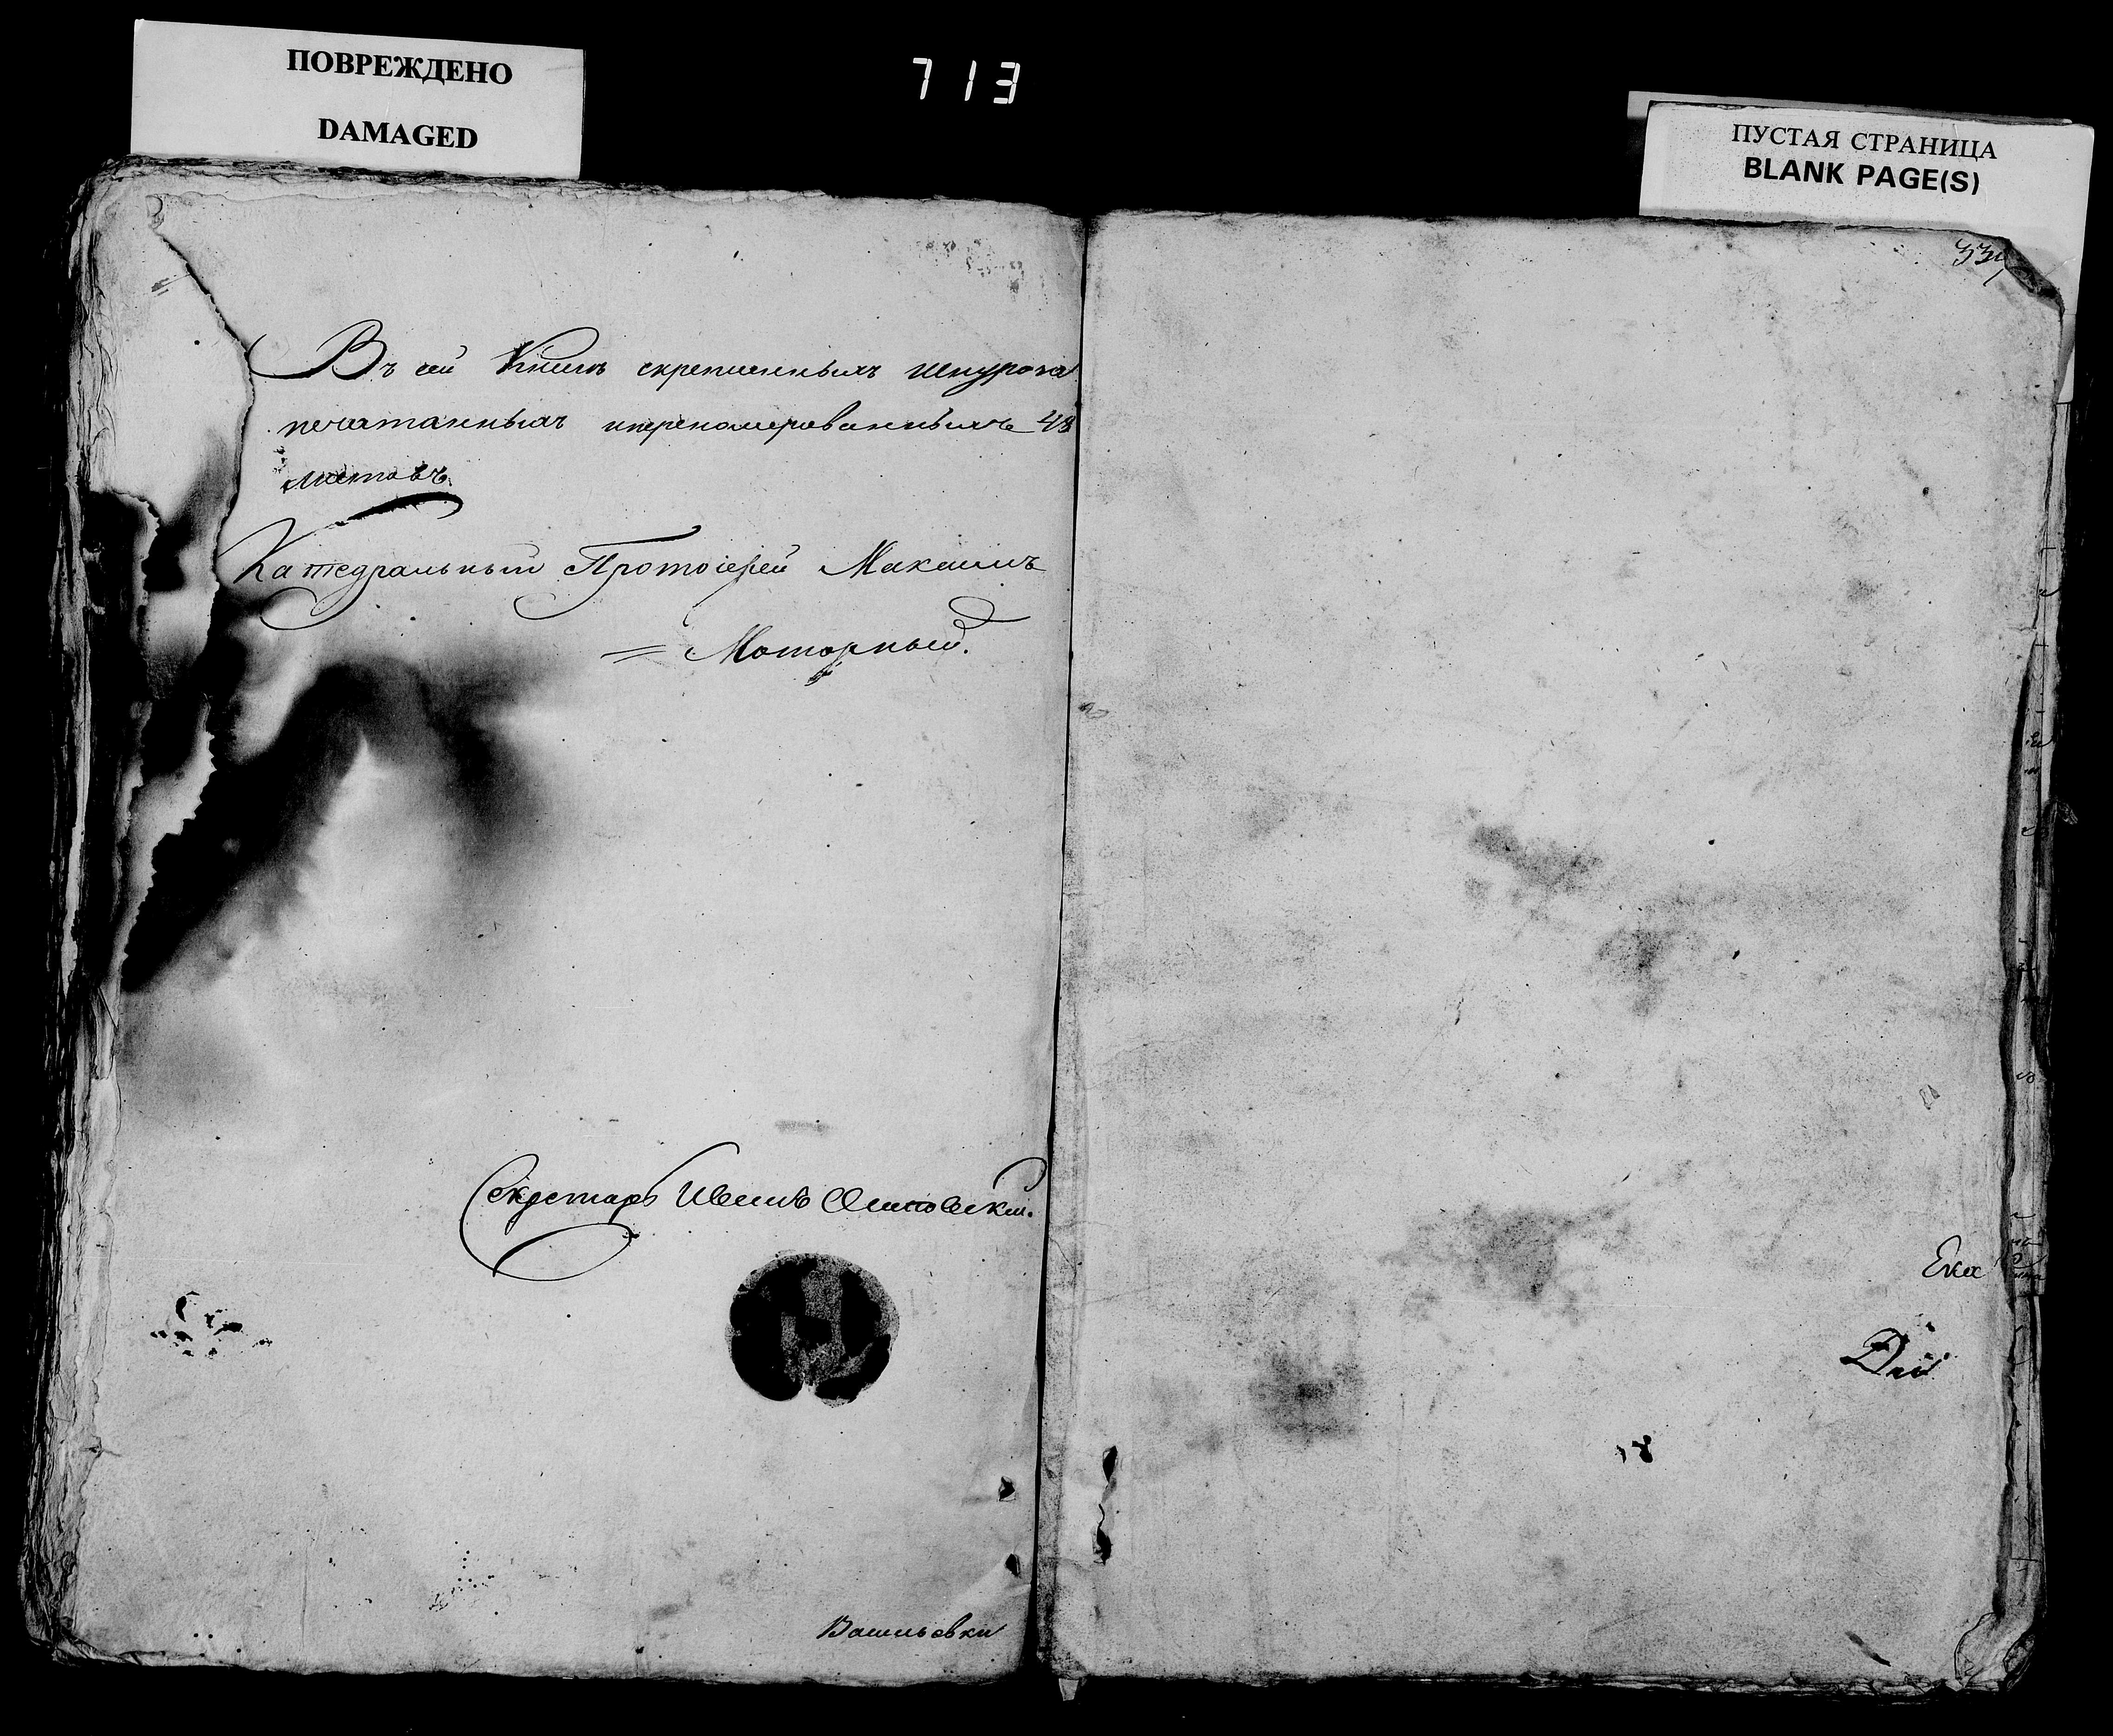 ПОВРЕЖДЕНО
DAMAGED
713
ПУСТАЯ СТРАНИЦА
BLANK PAGE(S)
Въ сей Книгѣ скрепленныхъ шнуроза
печатанныхъ ипреномерованныхъ 48
листовъ
Катедральный Протоіерей Максимъ
= Моторный.
Секретарь Иванъ
Васильевки
Ека